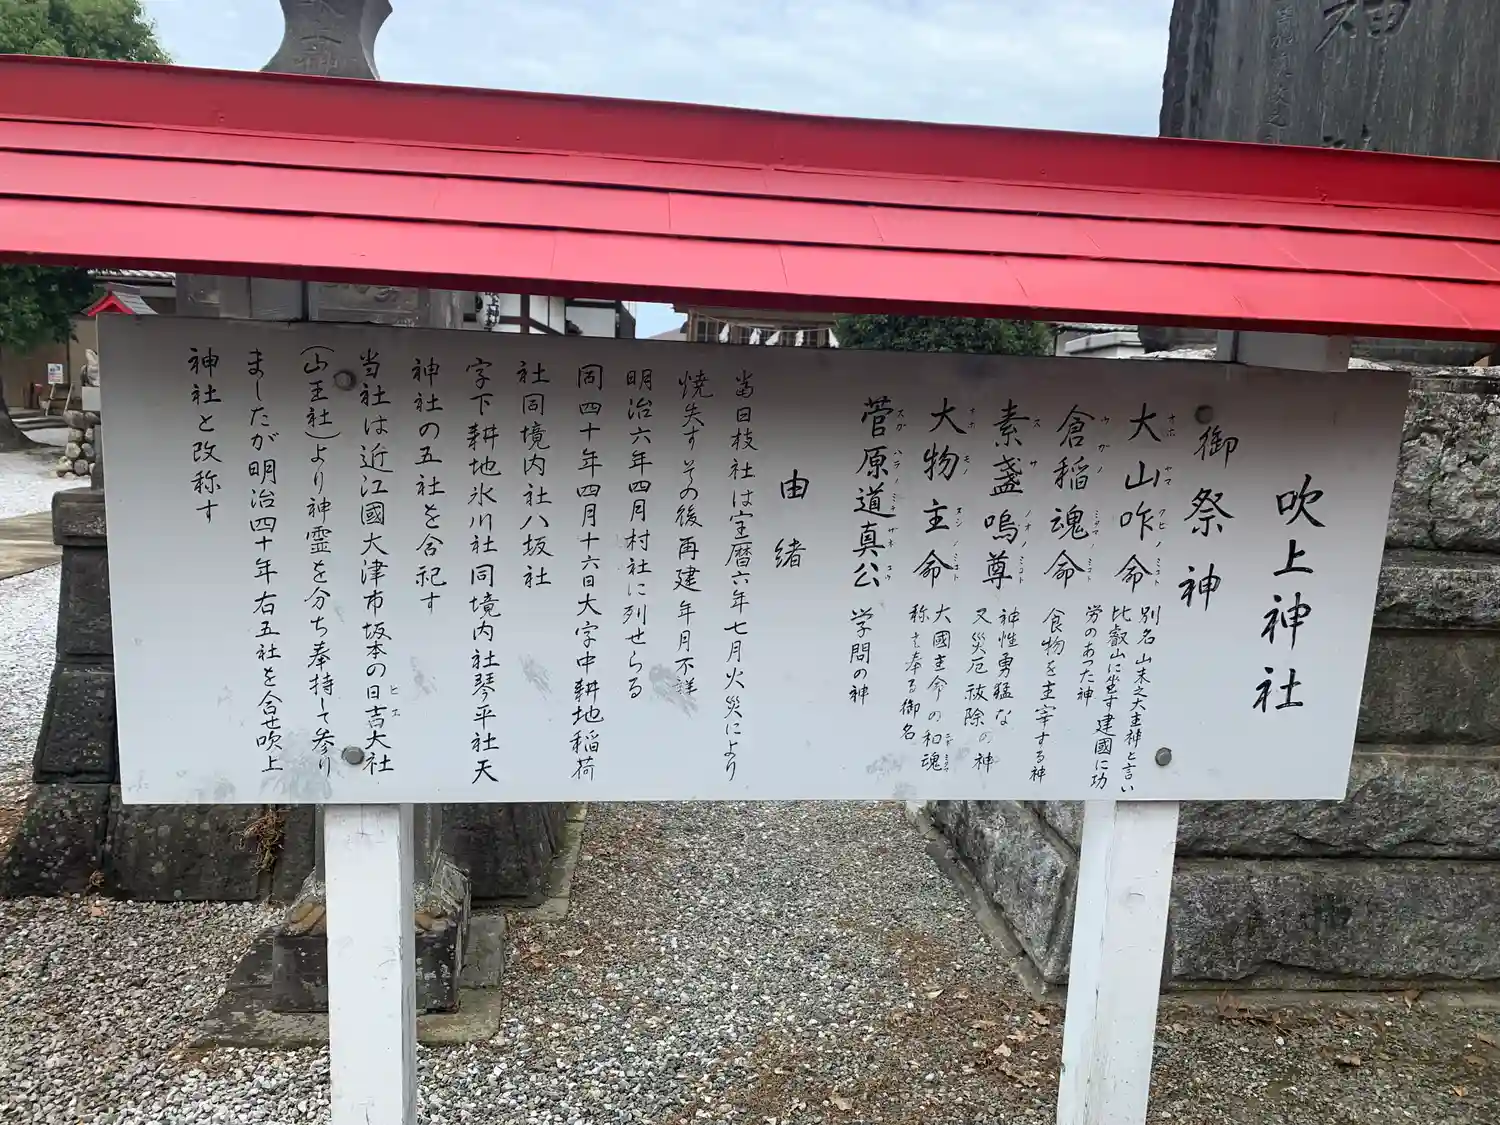 吹上神社
御祭神
大山咋命 別名山末之大主神と言い
比叡山に坐す建國に功
労のあつた神
倉稲魂命 食物を主宰する神
素盞嗚尊 神性勇猛な
又災厄祓除の神
大物主命 大國主命の和魂
称え奉る御名
菅原道真公 学問の神
由緒
当日枝社は宝暦六年七月火災により
焼失すその後再建年月不詳
明治六年四月村社に列せらる
同四十年四月十六日大字中耕地稲荷
社同境内社八坂社
字下耕地氷川社同境内社琴平社天
神社の五社を合祀す
当社は近江國大津市坂本の日吉大社
(山王社)より神霊を分ち奉持して参り
ましたが明治四十年右五社を合せ吹上
神社と改称す
神